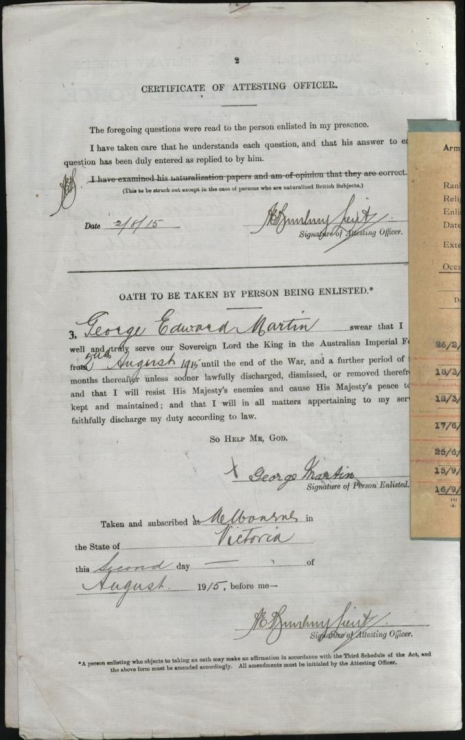 2
CERTIFICATE OF ATTESTING OFFICER.
The foregoing questions were read to the person enlisted in my presence.
I have taken care that he understands each question, and that his answer to
question has been duly entered as replied to by him.
I have examined his naturalization papers and am of opinion that they are correct.
(This to be struck out except in the case of persons who are naturalized British Subjects.)
Date 2/8/15
Signature of Attesting Officer.
OATH TO BE TAKEN BY PERSON BEING ENLISTED.*
3. George Edward Martin swear that I
well and truly serve our Sovereign Lord the King in the Australian Imperial
from 2nd August 1915 until the end of the War, and a further period of
months thereafter unless sooner lawfully discharged, dismissed, or removed
and that I will resist His Majesty's enemies and cause His Majesty's peace
kept and maintained; and that I will in all matters appertaining to my
faithfully discharge my duty according to law.
SO HELP ME, GOD.
X George Martin
Signature of Person Enlisted.
Taken and subscribed at Melbourne in
the State of Victoria
this Second day of
August 1915, before me—
Signature of Attesting Officer.
*A person enlisting who objects to taking an oath may make an affirmation in accordance with the Third Schedule of the Act, and
the above form must be amended accordingly. All amendments must be initialed by the Attesting Officer.
Arm
Rank
Relig
Enli
Date
Exte
Occu
26/2/
18/3/
18/3/
17/6/
25/6/
15/9/
16/9/